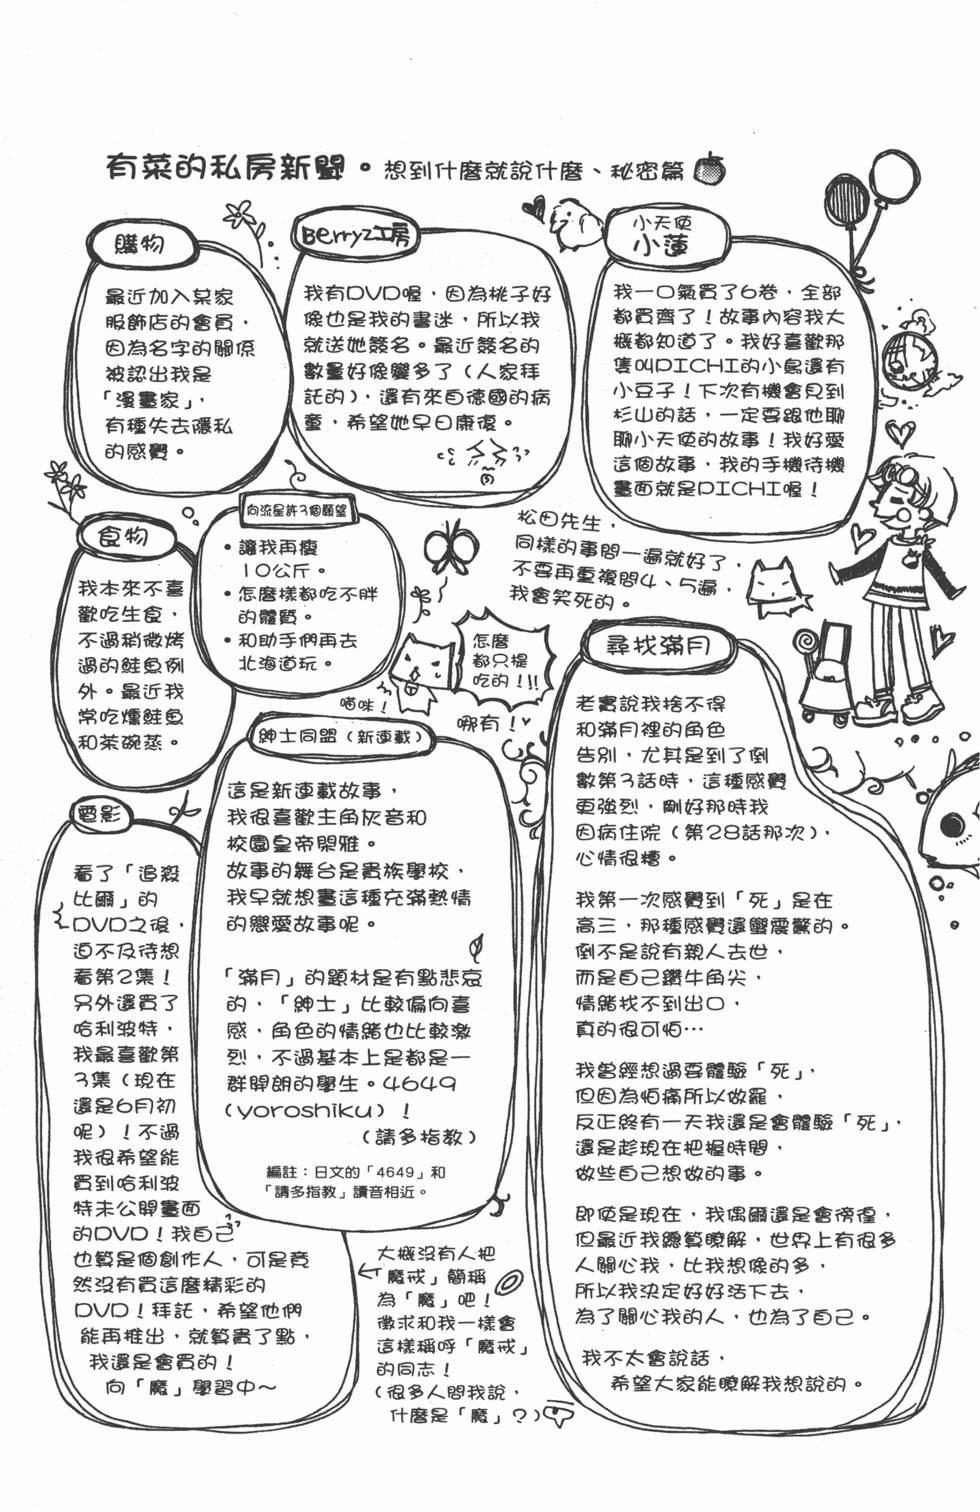 有菜的私房新聞。想到什麼就說什麼、秘密篇
購物
最近加入某家
服飾店的會員，
因為名字的關係
被認出我是
「漫畫家」，
有種失去隱私
的感覺。
Berryz工房
我有DVD喔，因為桃子好
像也是我的書迷，所以我
就送她簽名。最近簽名的
數量好像變多了（人家拜
託的），還有來自德國的病
童，希望她早日康復。
小天使
小蓮
我一口氣買了6卷，全部
都買齊了！故事內容我大
概都知道了。我好喜歡那
隻叫PICHI的小鳥還有
小豆子！下次有機會見到
杉山的話，一定要跟他聊
聊小天使的故事！我好愛
這個故事，我的手機待機
畫面就是PICHI喔！
食物
我本來不喜
歡吃生食，
不過稍微烤
過的鮭魚例
外。最近我
常吃燻鮭魚
和茶碗蒸。
向流星許3個願望
・讓我再瘦
10公斤。
・怎麼樣都吃不胖
的體質。
・和助手們再去
北海道玩。
松田先生，
同樣的事問一遍就好了，
不要再重複問4、5遍，
我會笑死的。
怎麼
都只提
吃的！!!
喵咪！
哪有！
尋找滿月
老實說我捨不得
和滿月裡的角色
告別，尤其是到了倒
數第3話時，這種感覺
更強烈，剛好那時我
因病住院（第28話那次），
心情很糟。
我第一次感覺到「死」是在
高三，那種感覺還蠻震驚的。
倒不是說有親人去世，
而是自己鑽牛角尖，
情緒找不到出口，
真的很可怕…
我曾經想過要體驗「死」，
但因為怕痛所以做罷，
反正終有一天我還是會體驗「死」，
還是趁現在把握時間，
做些自己想做的事。
即使是現在，我偶爾還是會徬徨，
但最近我總算瞭解，世界上有很多
人關心我，比我想像的多，
所以我決定好好活下去，
為了關心我的人，也為了自己。
我不太會說話，
希望大家能瞭解我想說的。
紳士同盟（新連載）
這是新連載故事，
我很喜歡主角灰音和
校園皇帝閑雅。
故事的舞台是貴族學校，
我早就想畫這種充滿熱情
的戀愛故事呢。
「滿月」的題材是有點悲哀
的，「紳士」比較偏向喜
感，角色的情緒也比較激
烈，不過基本上是都是一
群開朗的學生。4649
（yoroshiku）！
（請多指教）
編註：日文的「4649」和
「請多指教」讀音相近。
電影
看了「追殺
比爾」的
DVD之後，
迫不及待想
看第2集！
另外還買了
哈利波特，
我最喜歡第
3集（現在
還是6月初
呢）！不過
我很希望能
買到哈利波
特未公開畫面
的DVD！我自己
也算是個創作人，可是竟
然沒有買這麼精彩的
DVD！拜託，希望他們
能再推出，就算貴了點，
我還是會買的！
向「魔」學習中～
大概沒有人把
「魔戒」簡稱
為「魔」吧！
徵求和我一樣會
這樣稱呼「魔戒」
的同志！
（很多人問我說，
什麼是「魔」？）